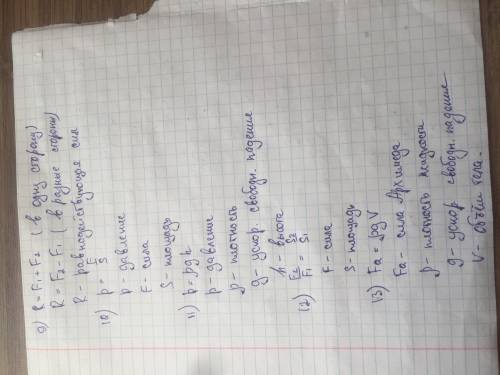 9) R = F₁ + F₂ (в одну сторану)
R = F₂ - F₁ (в разные стороны)
R - равнодействующая сил
10) p = F/S
p - давление
F - сила
S - площадь
11) p = ρgh
p - давление
ρ - плотность
g - ускор. свободн. падение
h - высота
12) F₂/F₁ = S₂/S₁
F - сила
S площадь
13) Fa = ρgV
Fa - сила Архимеда
ρ - плотность жидкости
g - ускор свободн. падение
V - объём тела.